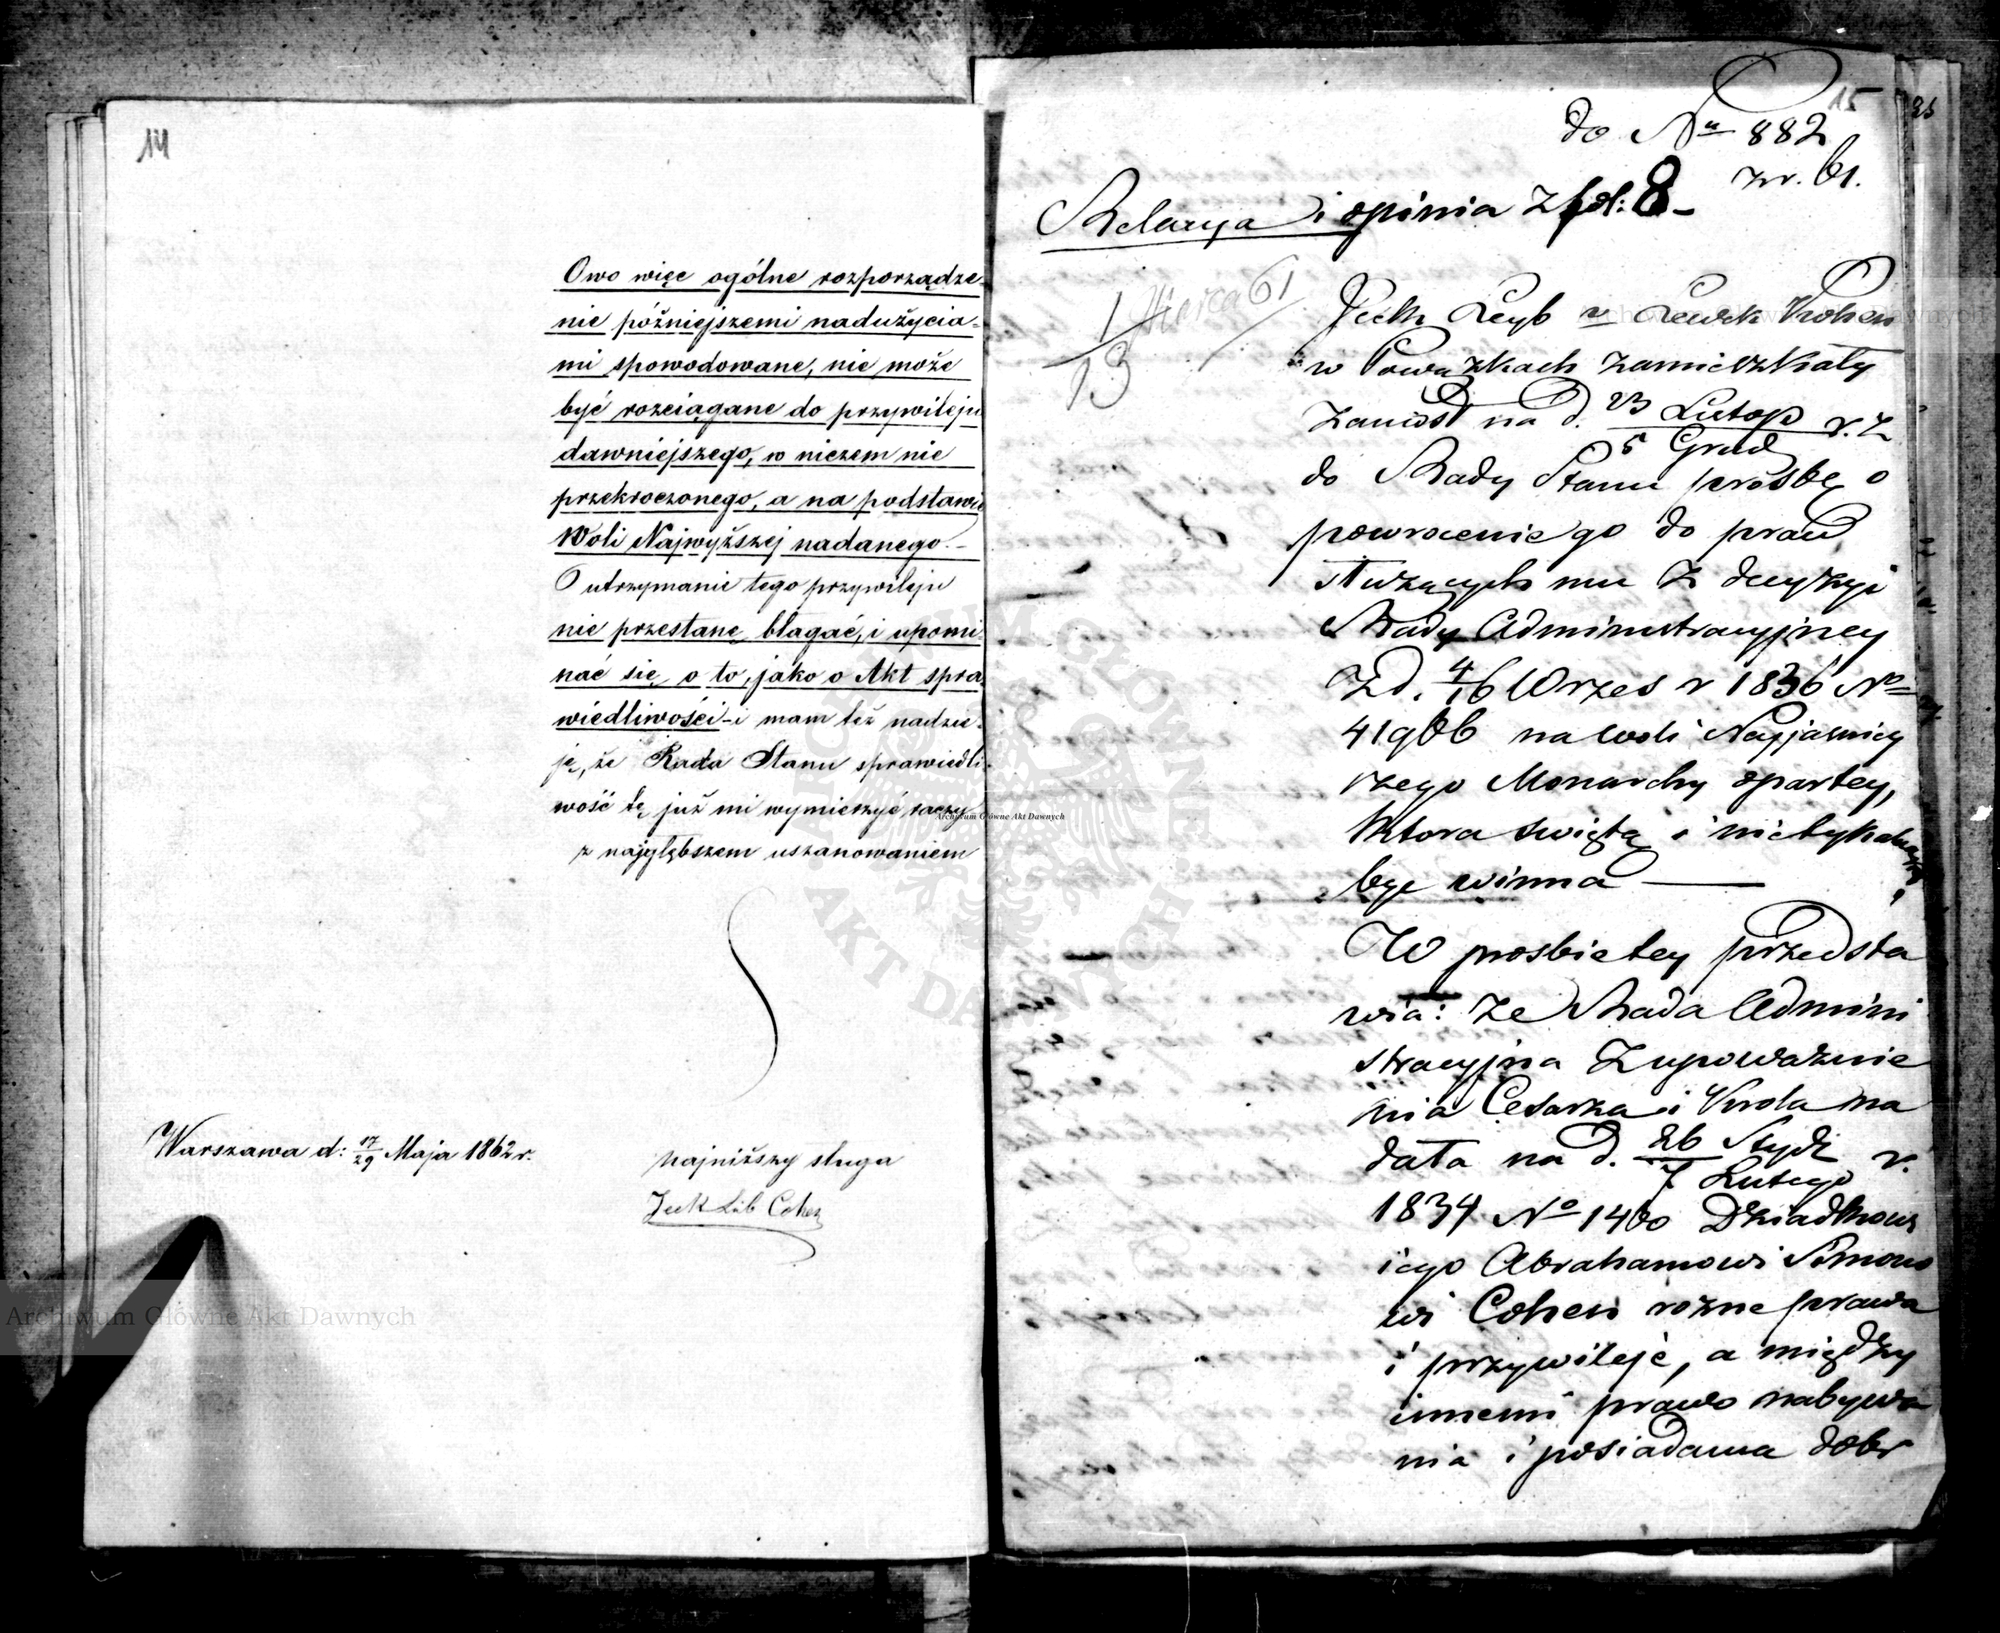 14
Owo więc ogólne rozporządze-
nie późniejszemi nadużycia-
mi spowodowane, nie może
być rozciągane do przywileju
dawniejszego, w niczem nie
przekroczonego, a na podstawie
Woli Najwyższej nadanego.-
O utrzymanie tego przywileju
nie przestanę błagać, i upomi-
nać się, o to, jako o Akt spra-
wiedliwości - i mam też nadzie-
ję, że Rada Stanu sprawiedli-
wość tę już mi wymierzyć raczy
z najgłębszem uszanowaniem
Warszawa d: 17/29 Maja 1862 r.
najniższy sługa
Jeek Lib Cohen
15
do No 882
z r. 61.
Relacya i opinia z fol: 8-
1/13 61
Jeek Leyb v Lewek Kohen
w Powązkach zamieszkały
zaniosł na d. 23 Listop / 5 Grud r. z
do Rady Stanu prośbę o
powrocenie go do praw
służących mu z decyzyi
Rady Administracyjney
z d. 4/16 Wrzes r 1836 No
41986 na woli Nayjaśniey
szego Monarchy opartey,
ktora swiętą i nietykalną
byc winna —
W prosbie tey przedsta
wia: że Rada Admini
stracyjna z upoważnie
nia Cesarza i Krola na
dała na d. 26 Stycz / 7 Lutego r.
1834 No 1460 Dziadkowi
iego Abrahamowi Simono
wi Cohen rożne prawa
i przywileje, a między
innemi prawo nabywa
nia i posiadania dobr
Archiwum Główne Akt Dawnych
Archiwum Główne Akt Dawnych